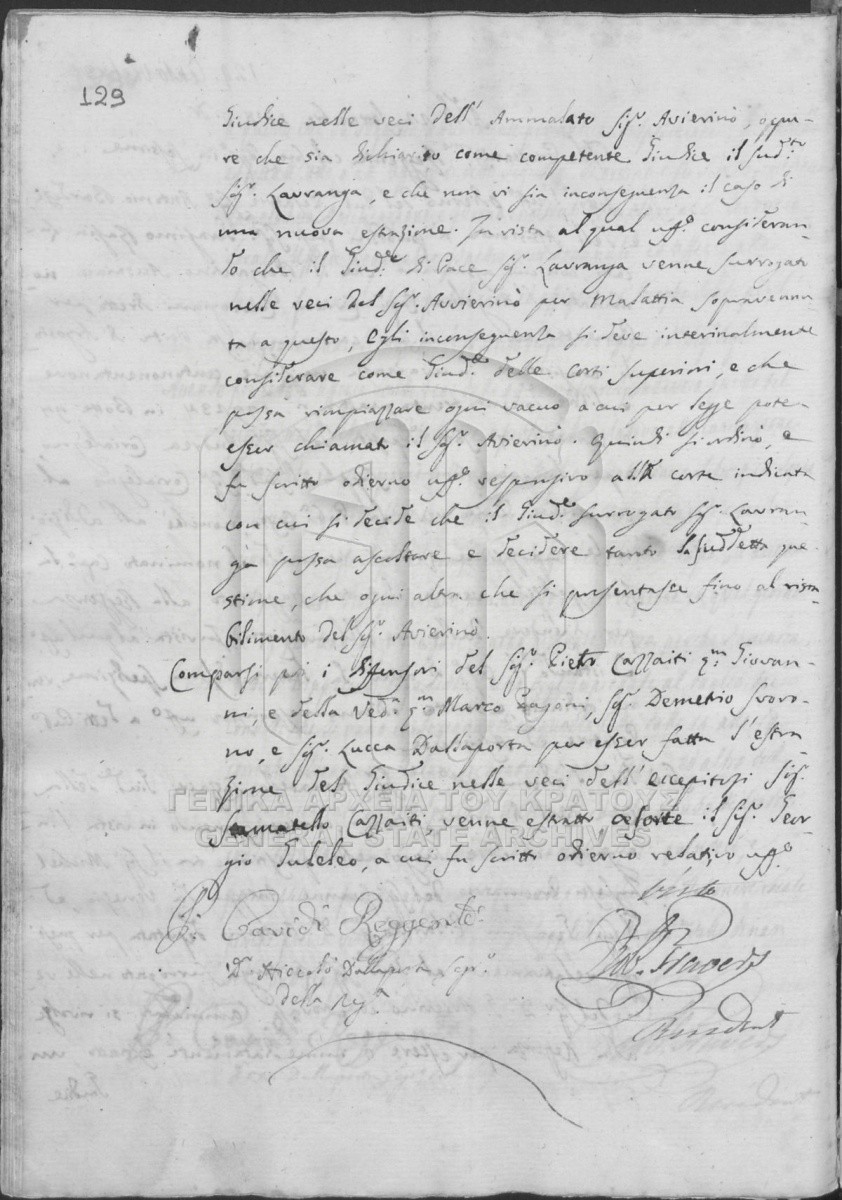 129
Giudice nelle veci dell' Ammalato Sigr. Avierinò, oppu-
re che sia dichiarito come competente Giudice il sud.to
Sigr. Lavranga, e che non vi sia inconseguenza il caso di
una nuova estrazione. In vista al qual uff.o consideran-
do che il Giud.e di Pace Sigr. Lavranga venne surrogato
nelle veci del Sigr. Avvierinò per Malattia sopravenu-
ta a questo, Egli inconseguenza si deve interinalmente
considerare come Giud.e delle Corti Superiori, e che
possa rimpiazzare ogni vacuo a cui per legge potea
esser chiamato il Sigr. Avierinò. Quindi si ordinò, e
fu scritto odierno uff.o responsivo alla Corte indicata
con cui si decide che il Giud.e surrogato Sigr. Lavran-
ga possa ascoltare e decidere tanto la suddetta que-
stione, che ogni altra che si presentasse fino al rista-
bilimento del Sigr. Avierinò.
Comparsi poi i difensori del Sigr. Pietro Cazzaiti qm. Giovan-
ni, e della Ved.a qm. Marco Pagoni, Sigr. Demetrio Svoro-
no, e Sigr. Lucca Dallaporta per esser fatta l'estra-
zione del Giudice nelle veci dell' eccepitosi Sigr.
Stamatello Cazzaiti, venne estratto a sorte il Sigr. Geor-
gio Tuleleo, a cui fu scritto odierno relativo uff.o
Cavidi Reggente
D. Niccolò Dallaporta Seg.o
della Reg.a
Visto
Presidente
ΓΕΝΙΚΑ ΑΡΧΕΙΑ ΤΟΥ ΚΡΑΤΟΥΣ
GENERAL STATE ARCHIVES